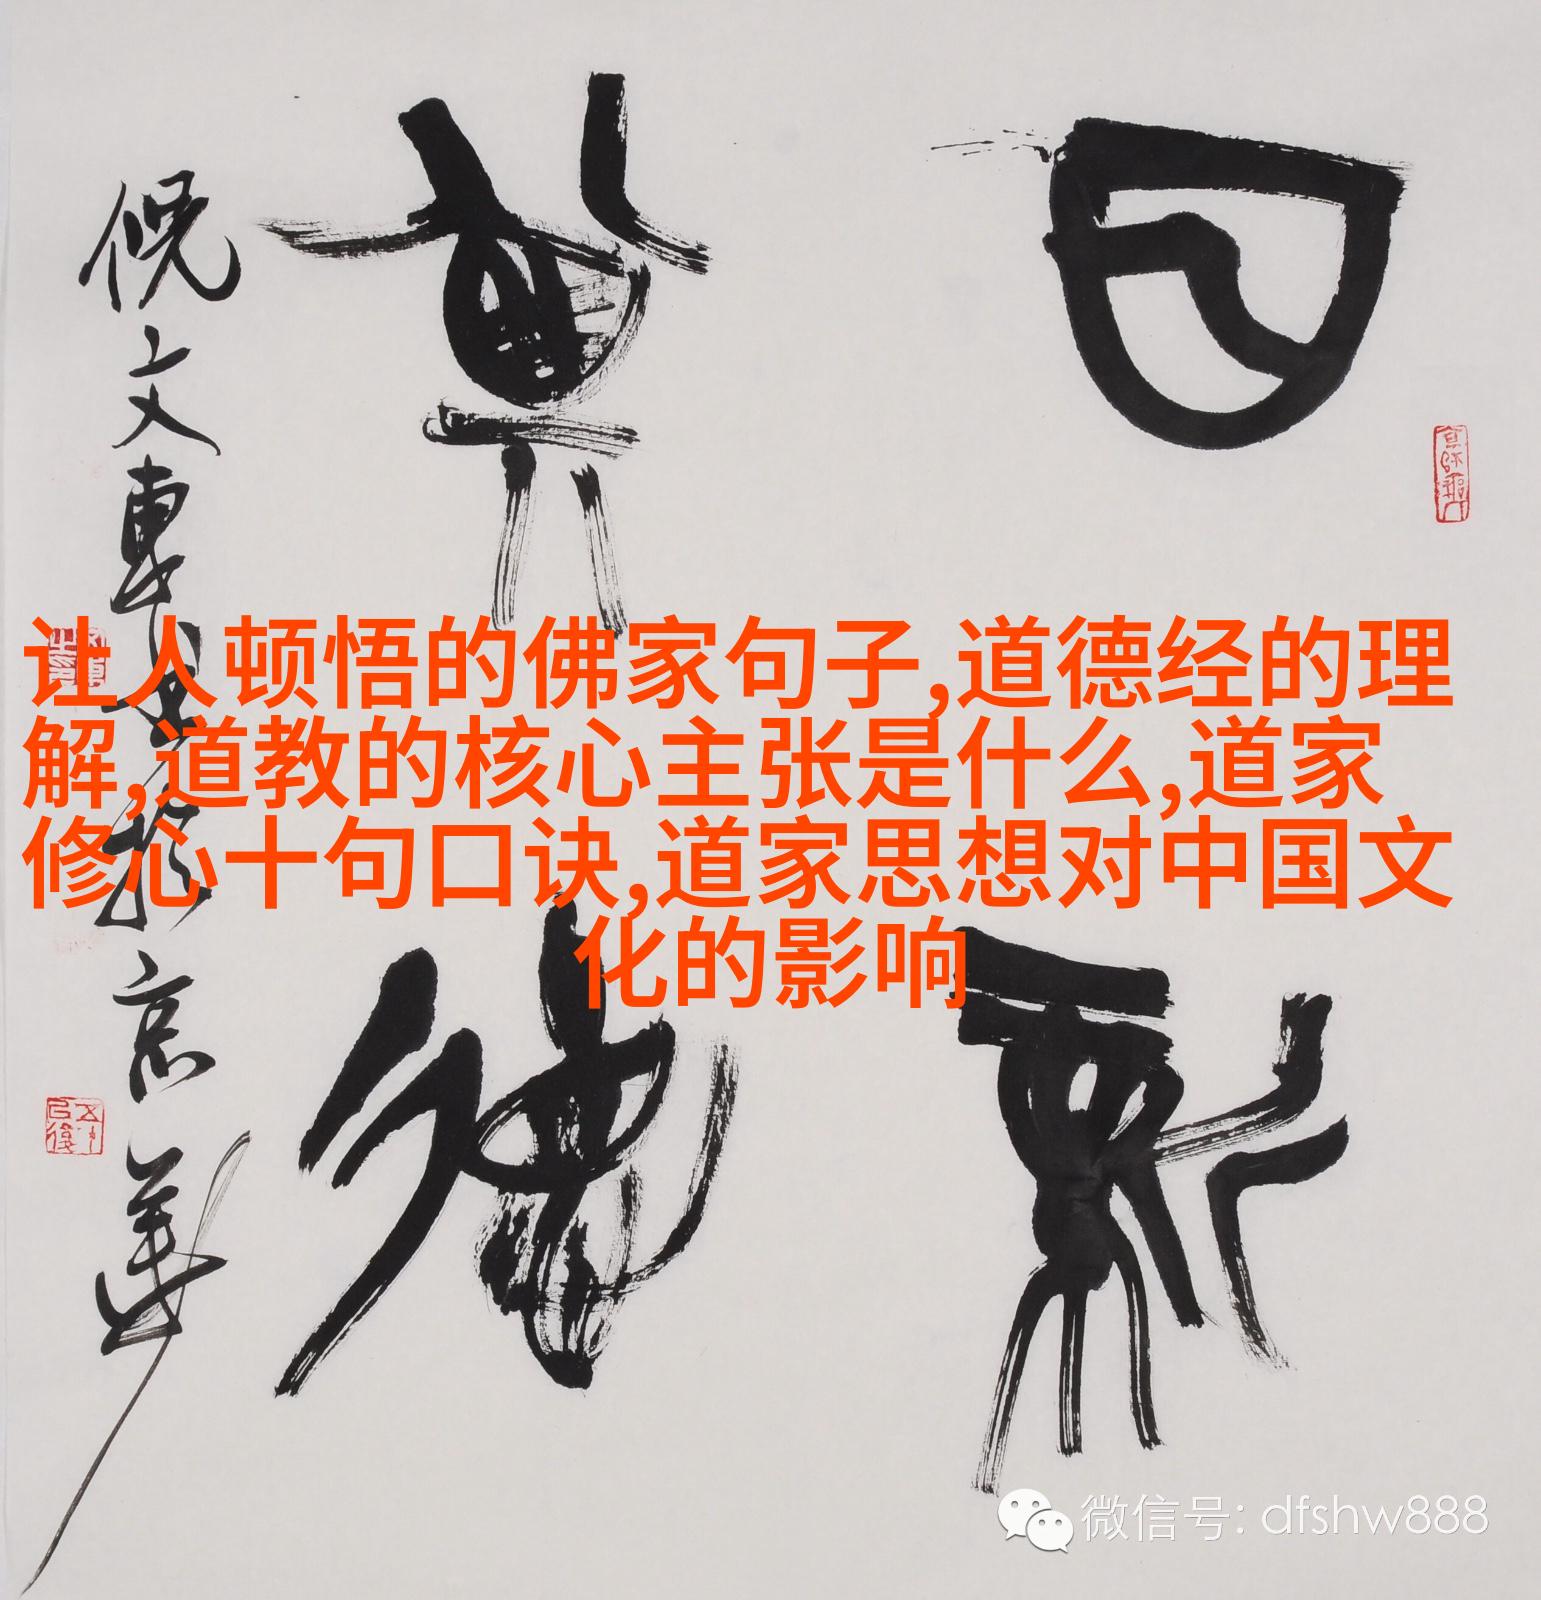 让人顿悟的佛家句子,道德经的理
解,道教的核心主张是什么,道家
修心十句口诀,道家思想对中国文
化的影响
日
新
其
德
倪文東書於京華
微信号: dfshw888